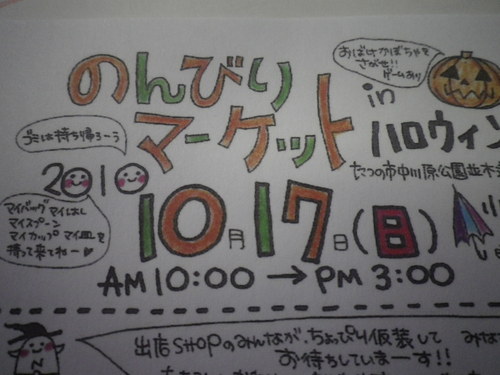 のんびり
マーケット
in
ハロウィン
おばけかぼちゃを
さがせ!!
ゲームあり
たつの市中川原公園並木
ゴミは持ち帰ろーう
2010
10月17日(日)
AM 10:00 → PM 3:00
マイバッグ マイはし
マイスプーン
マイカップ マイ皿を
持って来てねー
出店SHOPのみんなが、ちょっぴり仮装して
お待ちしていまーす!!